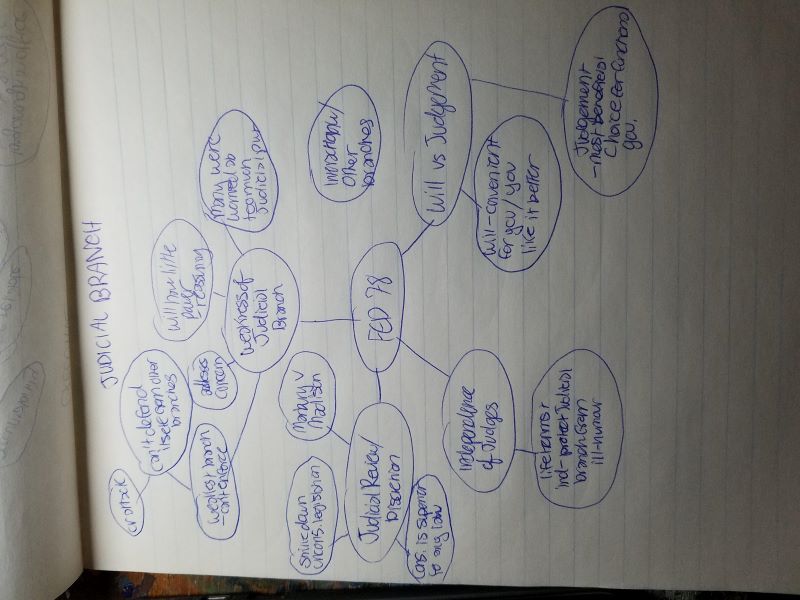 JUDICIAL BRANCH
or attack
can't defend
itself from other
branches
weakest branch
- can't enforce
addresses
concern
will have little
power
- reasoning
many were
worried ab
too much
Judicial pwr
weakness of
Judicial
Branch
strike down
uncons. legislation
Marbury v
Madison
Judicial Review/
Discretion
Cons. is superior
to any law
FED 78
Interaction w/
Other
branches
Will vs Judgement
Independence
of Judges
Will - convenient
for you / you
like it better
life terms +
ind - protect Judicial
branch from
ill-humour
Judgement
- most beneficial
choice for functional
gov.